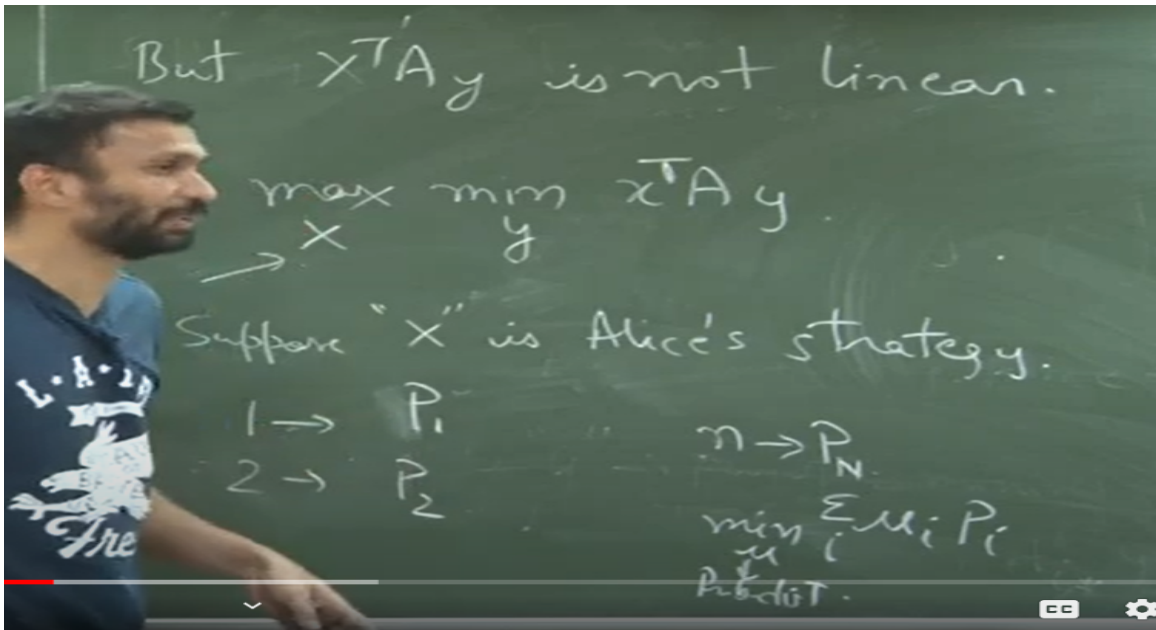 But X^T A y is not linear.
max min x^T A y.
X y
Suppose "X" is Alice's strategy.
1 → P₁
2 → P₂
n → P_N
min Σ μ_i P_i
μ i
L.A.
Fre
CC